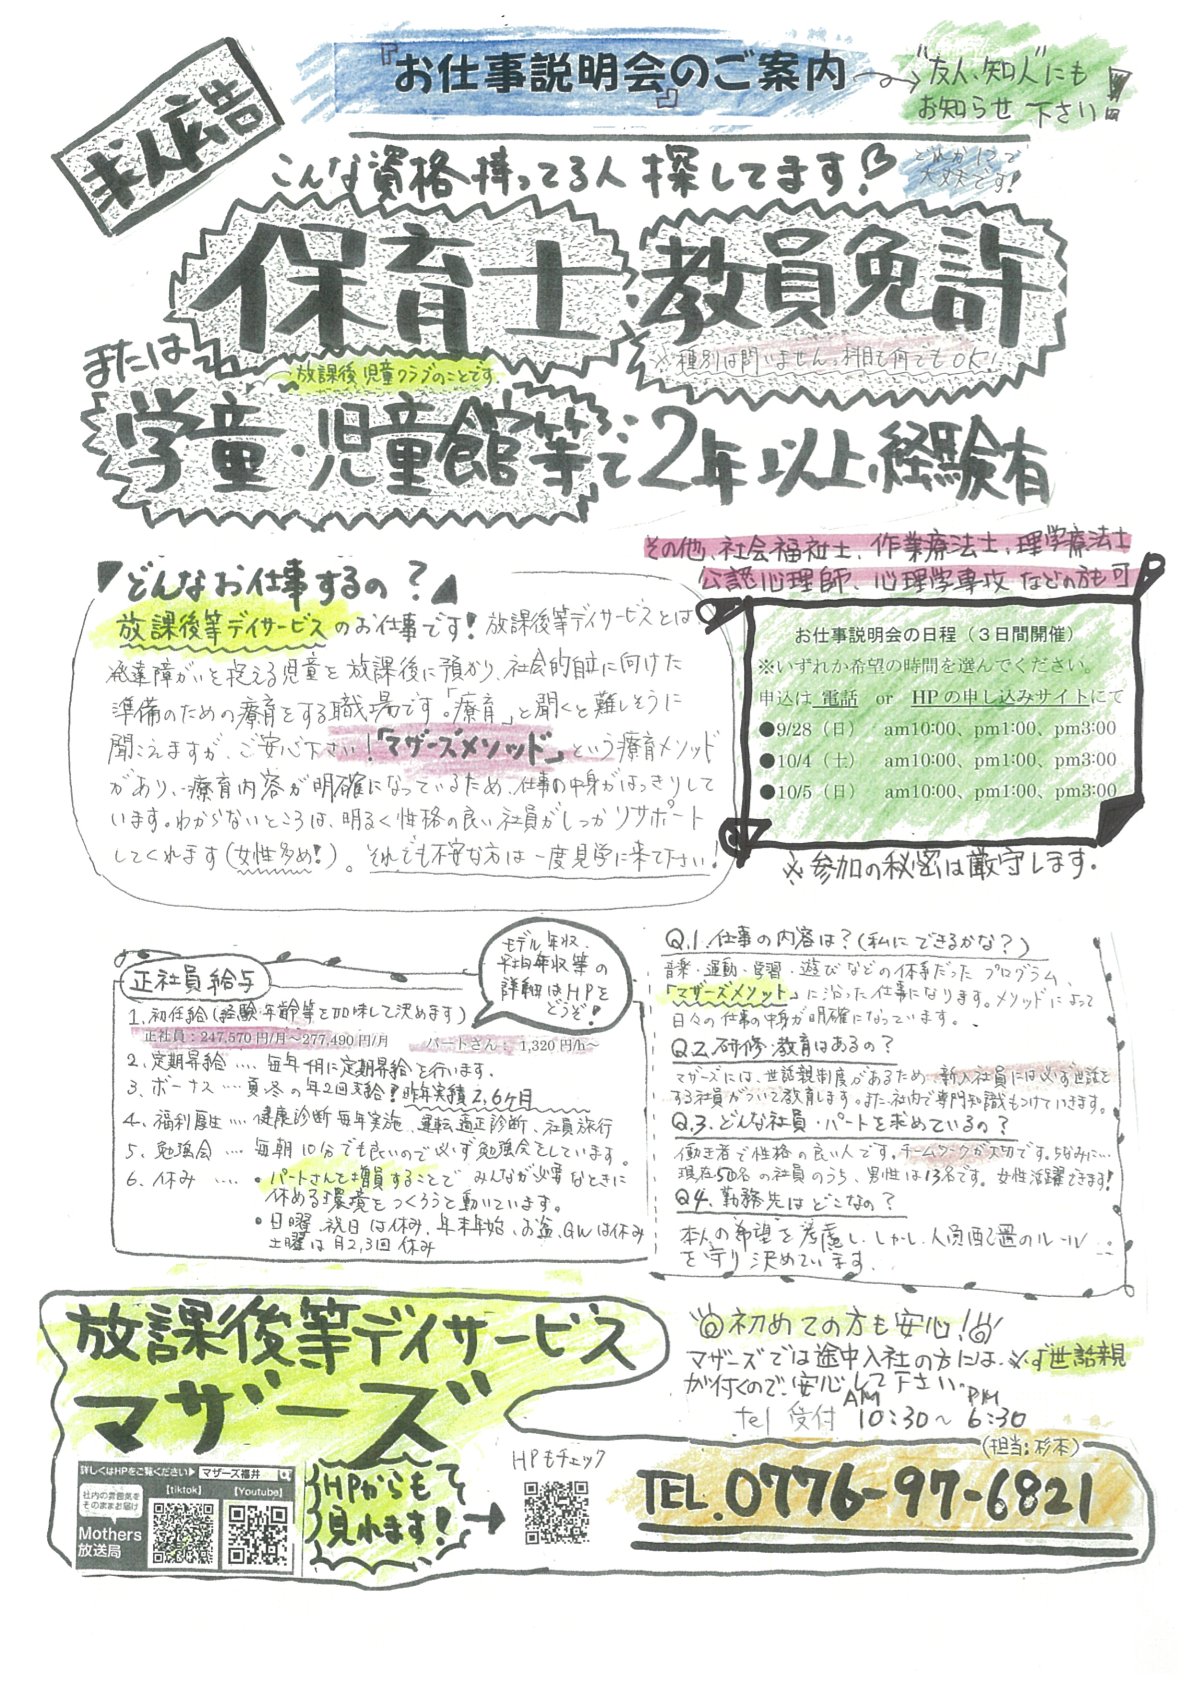 求人広告
『お仕事説明会のご案内』
"友人、知人"にも
お知らせ下さい!!
こんな資格持ってる人探してます!
どれか1つで
大丈夫です!
保育士・教員免許
※種別は問いません。科目も何でもOK!
または
放課後児童クラブのことです
学童・児童館等で2年以上経験有
その他、社会福祉士、作業療法士、理学療法士
公認心理師、心理学専攻などの方も可
どんなお仕事するの?
放課後等デイサービスのお仕事です!放課後等デイサービスとは、
発達障がいを抱える児童を放課後に預かり、社会的自立に向けた
準備のための療育をする職場です。「療育」と聞くと難しそうに
聞こえますが、ご安心下さい!「マザーズメソッド」という療育メソッド
があり、療育内容が明確になっているため、仕事の中身がはっきりして
います。わからないところは、明るく性格の良い社員がしっかりサポート
してくれます(女性多め!)。それでも不安な方は一度見学に来て下さい!
お仕事説明会の日程(3日間開催)
※いずれか希望の時間を選んでください。
申込は 電話 or HPの申し込みサイトにて
●9/28(日) am10:00、pm1:00、pm3:00
●10/4(土) am10:00、pm1:00、pm3:00
●10/5(日) am10:00、pm1:00、pm3:00
※参加の秘密は厳守します。
モデル年収、
平均年収等の
詳細はHPを
どうぞ!
正社員給与
1、初任給(経験年齢等を加味して決めます)
正社員:247,570円/月~277,490円/月 パートさん:1,320円/h~
2、定期昇給‥‥毎年1月に定期昇給を行います。
3、ボーナス‥‥夏、冬の年2回支給!昨年実績2,6ヶ月
4、福利厚生‥‥健康診断毎年実施、運転適正診断、社員旅行
5、勉強会‥‥毎朝10分でも良いので必ず勉強会をしています。
6、休み‥‥・パートさんを増員することで みんなが必要なときに
休める環境をつくろうと動いています。
・日曜、祝日は休み、年末年始、お盆、GWは休み
土曜は月2,3回休み
Q.1.仕事の内容は?(私にできるかな?)
音楽・運動・学習・遊びなどの体系だったプログラム、
「マザーズメソット」に沿った仕事になります。メソッドによって
日々の仕事の中身が明確になっています。
Q.2.研修・教育はあるの?
マザーズには、世話親制度があるため、新入社員には必ず世話を
する社員がついて教育します。また、社内で専門知識もつけていきます。
Q.3.どんな社員・パートを求めているの?
働き者で性格の良い人です。チームワークが大切です。ちなみに…
現在50名の社員のうち、男性は13名です。女性活躍できます!
Q4、勤務先はどこなの?
本人の希望を考慮し、しかし、人員配置のルール
を守り決めています。
放課後等デイサービス
マザーズ
初めての方も安心!
マザーズでは途中入社の方には、必ず世話親
が付くので、安心して下さい。
tel 受付 AM10:30~PM6:30
(担当:杉本)
TEL.0776-97-6821
詳しくはHPをご覧ください▶マザーズ福井
社内の雰囲気を
そのままお届け
Mothers
放送局
【tiktok】
【Youtube】
HPからもって
見れます!
HPもチェック